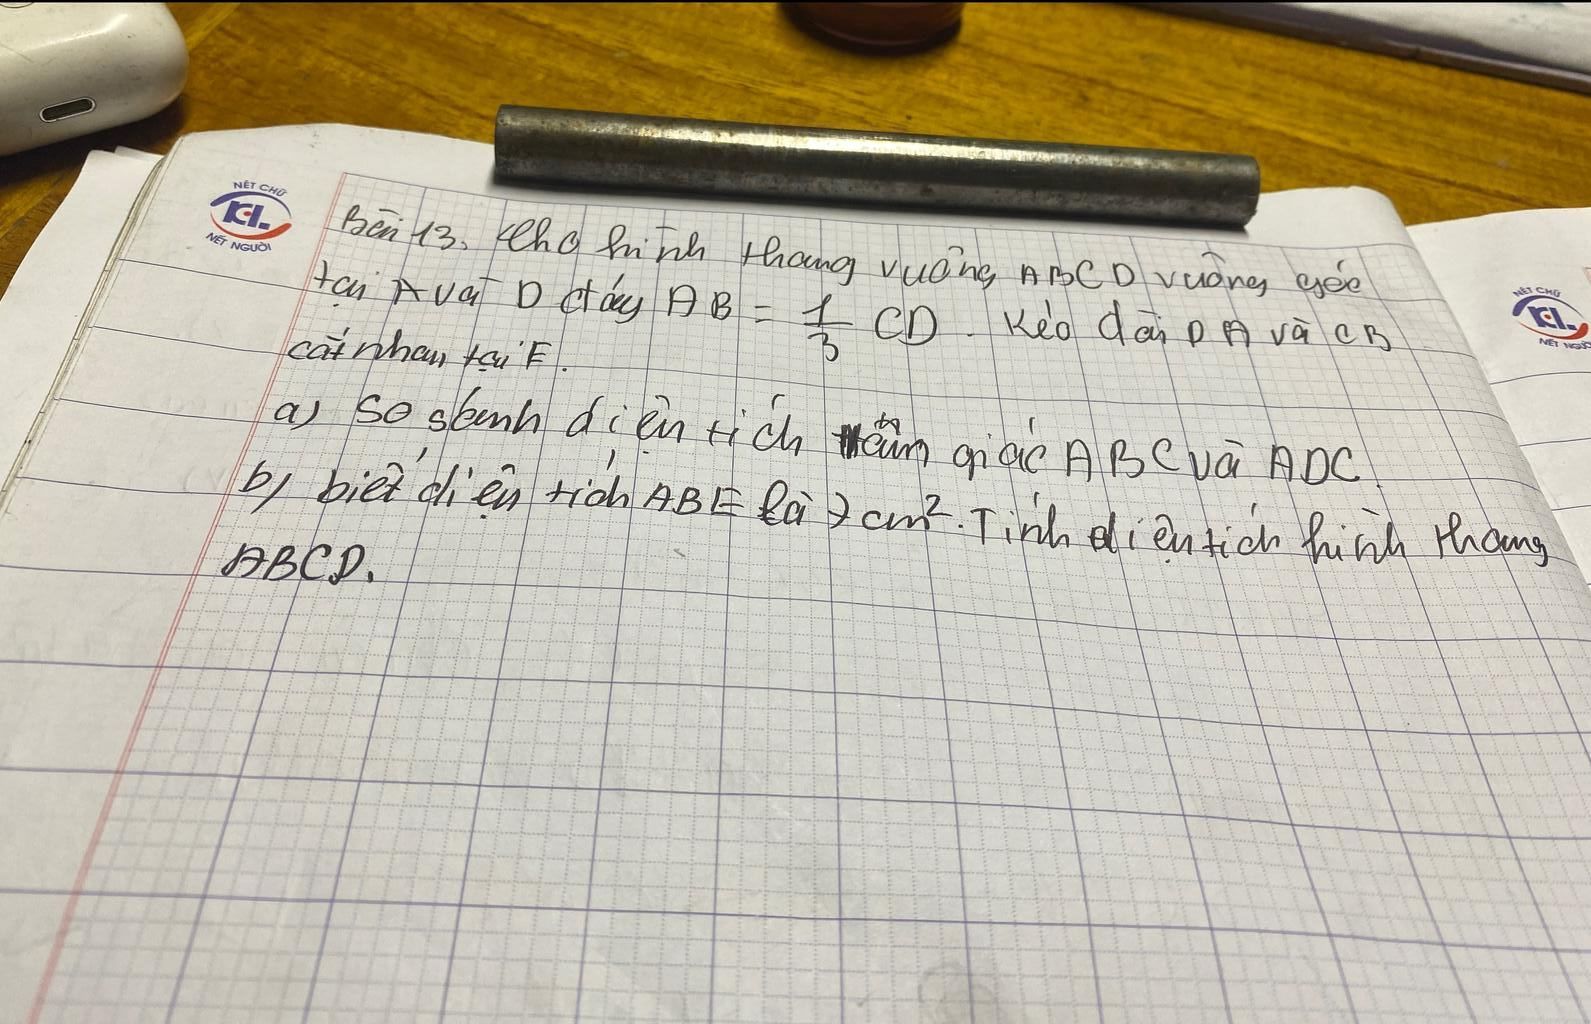 NÉT CHỮ
KL.
NẾT NGƯỜI
Bài 13. Cho hình thang vuông ABCD vuông góc
tại A và D đáy AB = 1/3 CD. Kéo dài DA và CB
cắt nhau tại E.
a) So sánh diện tích tam giác ABC và ADC.
b) biết diện tích ABE là 7 cm². Tính diện tích hình thang
ABCD.
NÉT CHỮ
KL.
NẾT NGƯỜI